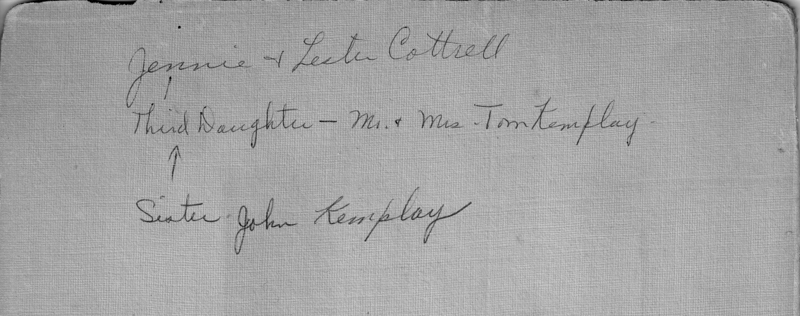 Jennie & Lester Cottrell
Third Daughter - Mr. & Mrs. Tom Kemplay
Sister John Kemplay